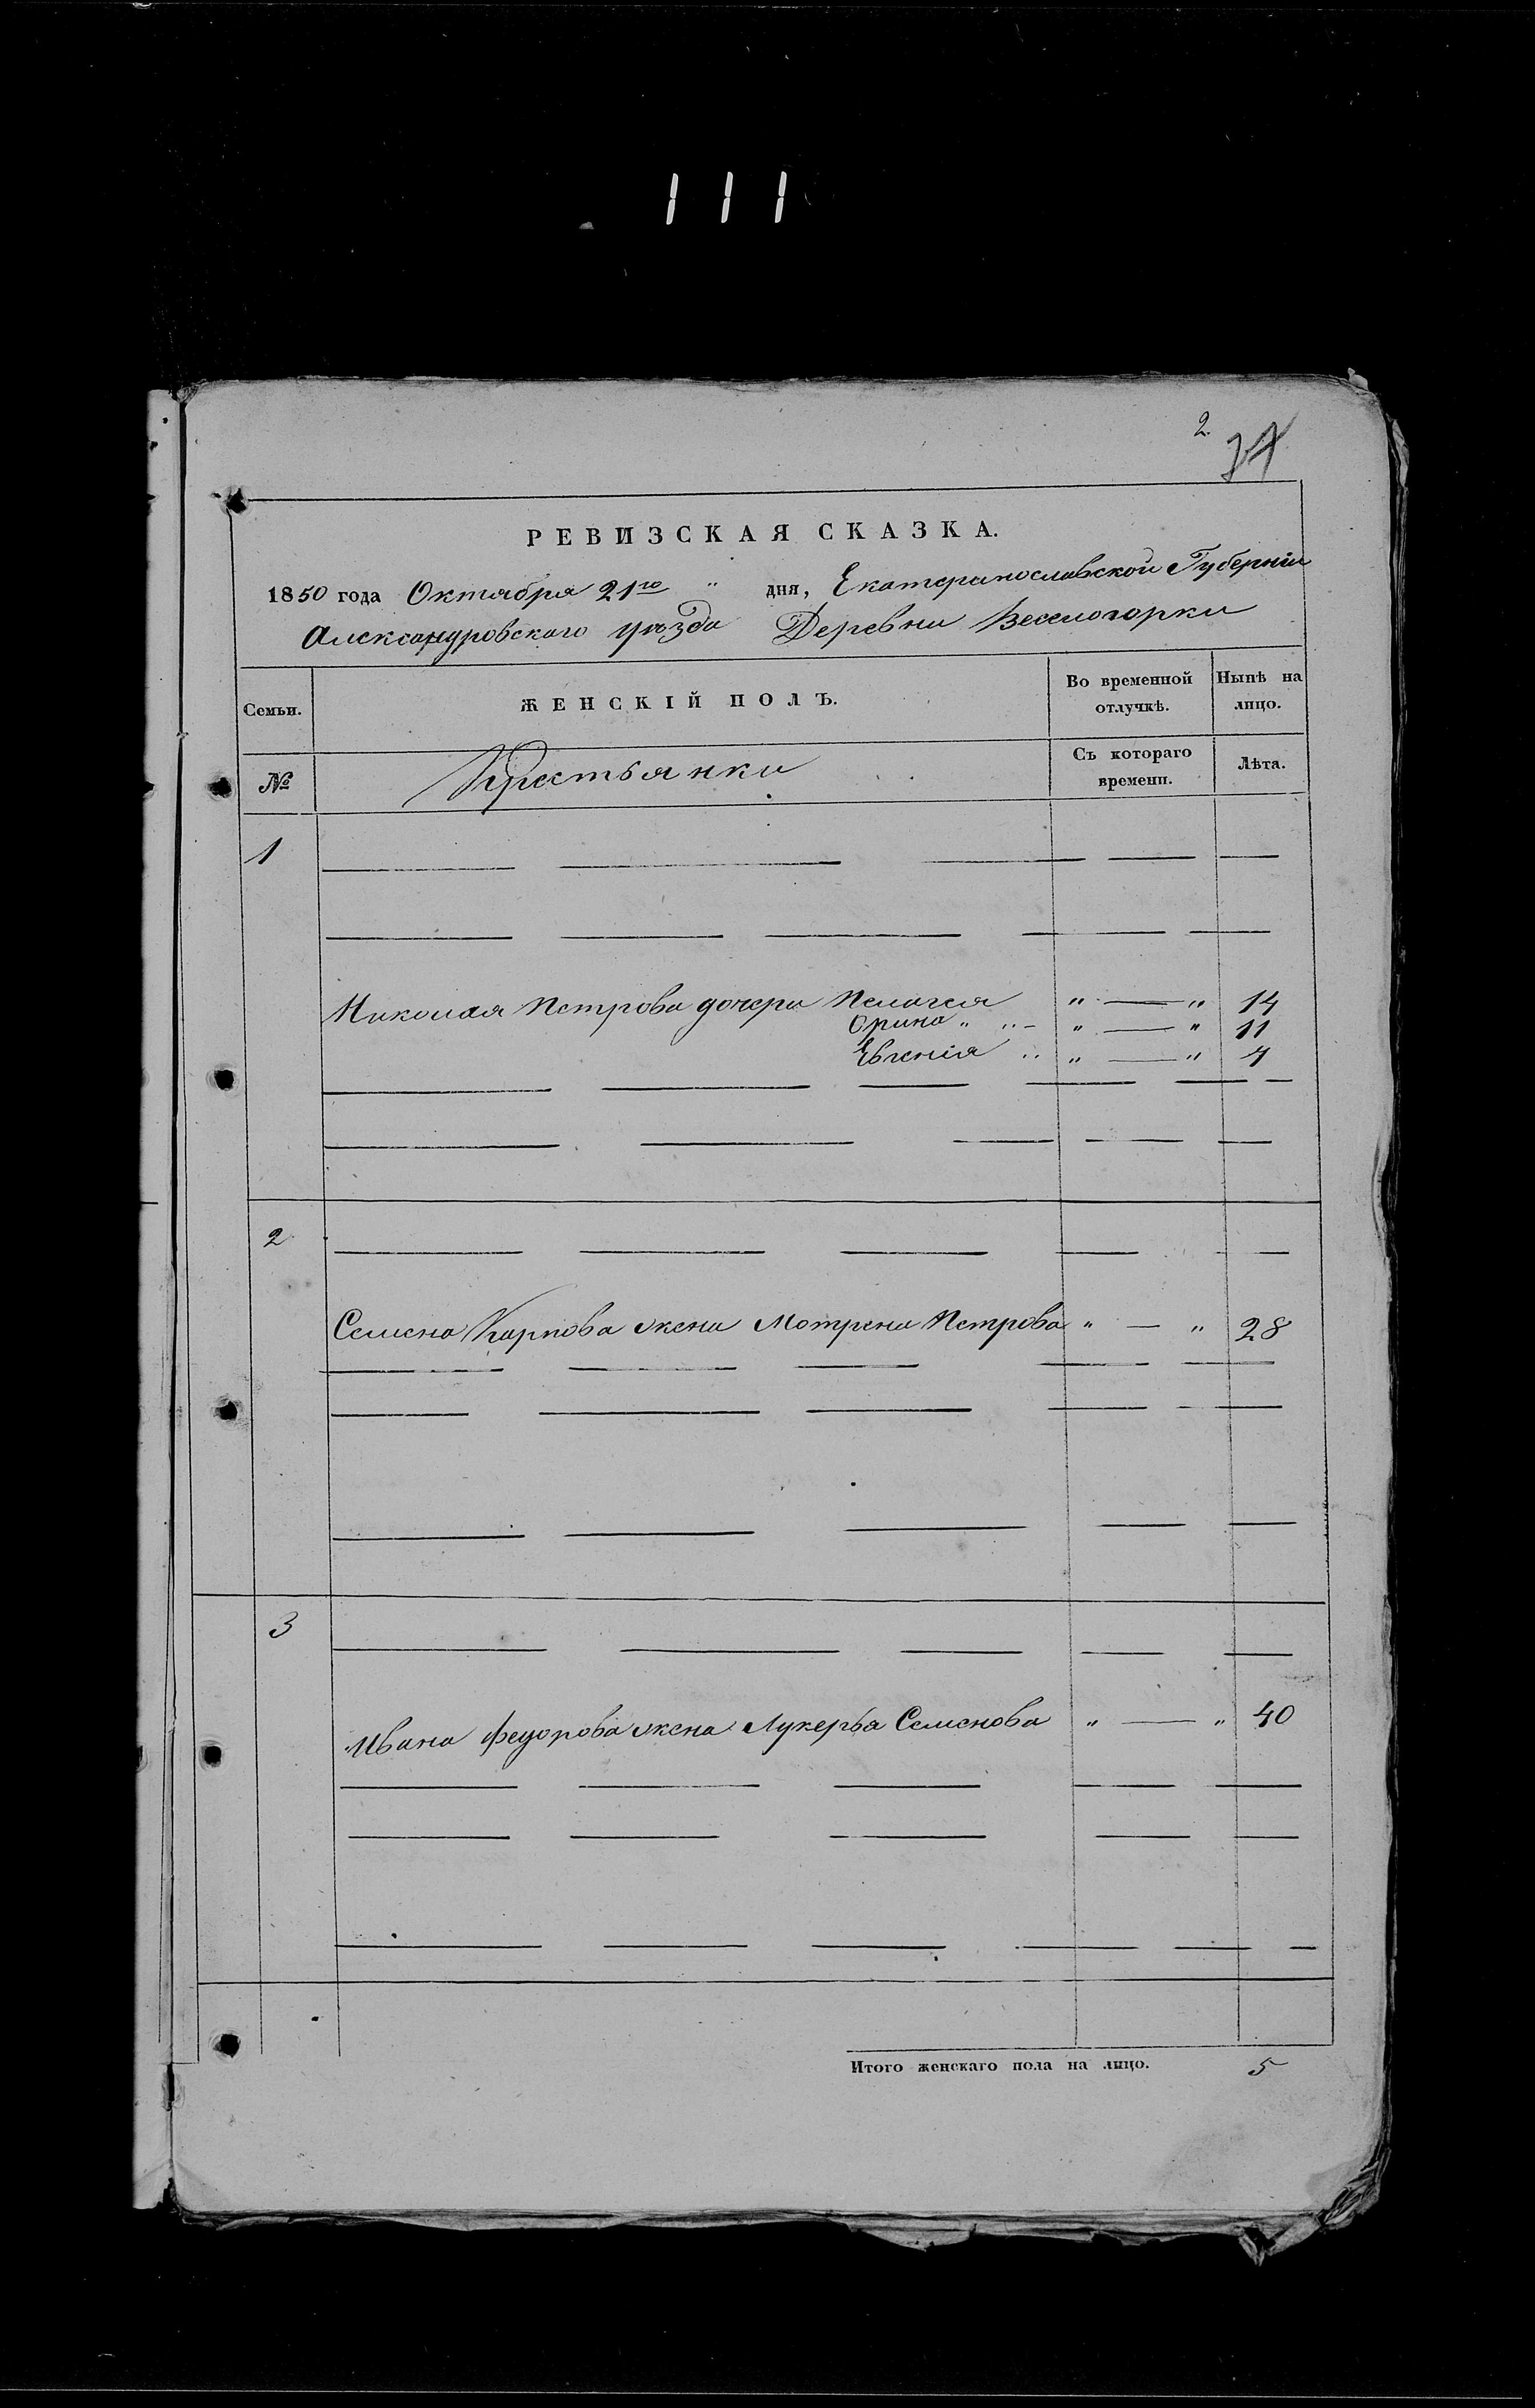 111
2.
РЕВИЗСКАЯ СКАЗКА.
1850 года Октября 21го " дня, Екатеринославской Губерніи
Александровскаго уѣзда Деревни Веселогорки
Семьи. ЖЕНСКІЙ ПОЛЪ. Во временной отлучкѣ. Нынѣ на лицо.
№ Крестьянки Съ котораго времени. Лѣта.
1
Николая Петрова дочери Пелагея " — " 14
Орина " " — " — " 11
Евгенія " " — " 4
2
Семена Карпова жена Мотрена Петрова " — " 28
3
Ивана Федорова жена Лукерья Семенова " — " 40
Итого женскаго пола на лицо. 5